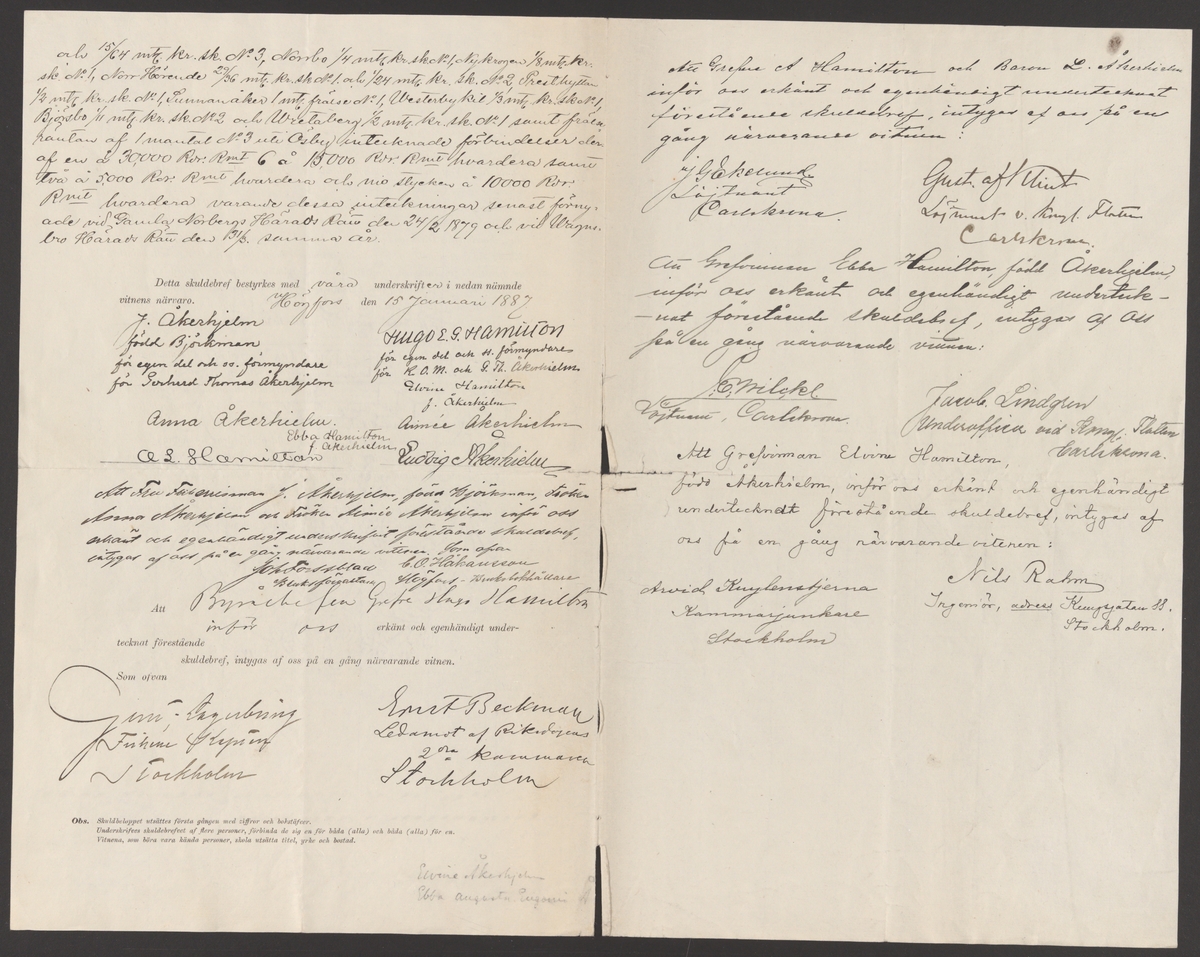 och 15/64 mtl kr. sk. No 3, Norrbo 1/4 mtl kr. sk No 1, Nykrogen 1/8 mtl kr.
sk No 1, Norr Hörende 29/96 mtl kr. sk No 1. och 1/24 mtl kr. sk. No 2, Presthyttan
1/2 mtl kr. sk. No 1, Sunnanåker 1 mtl frälse No 1, Westerbykil 1/3 mtl kr. sk No 1,
Björsbo 1/1 mtl kr. sk. No 2 och Wretaberg 1/2 mtl kr. sk. No 1 samt frälse
räntan af 1 mantal No 3 uti Åsby intecknade förbindelser der-
af en à 30,000 Rdr. Rmt 6 à 15,000 Rdr. Rmt hvardera samt
två à 5,000 Rdr. Rmt hvardera och nio stycken à 10000 Rdr.
Rmt hvardera varande dessa inteckningar senast förny-
ade, vid Gamla Norbergs Härads Rätt den 24/2 1879 och vid Wagns-
bro Härads Rätt den 13/3 samma år.
Detta skuldebref bestyrkes med våra underskrifter i nedan nämnde
vitnens närvaro. Högfors den 15 Januari 1887
J. Åkerhjelm
född Björkman
för egen del och ss. förmyndare
för Gerhard Thomas Åkerhjelm
Hugo E. G. Hamilton
för egen del och ss. förmyndare
för R. O. M. och G. Th. Åkerhielm
Elvine Hamilton
f. Åkerhielm
Anna Åkerhielm.
Aimée Åkerhielm
Ebba Hamilton
f. Åkerhielm
A L Hamilton
Ludvig Åkerhielm
Att Fru Friherrinnan J. Åkerhjelm, född Björkman, Fröken
Anna Åkerhjelm och Fröken Aimée Åkerhjelm inför oss
erkänt och egenhändigt underskrifvit förestående skuldebref,
intygas af oss på en gång närvarande vittnen. Som ofvan
Joh Forssblad
Bruksförvaltare
C. O. Håkansson
Högfors - Bruksbokhållare
Att Byråchefen Grefve Hugo Hamilton
inför oss erkänt och egenhändigt under-
tecknat förestående
skuldebref, intygas af oss på en gång närvarande vitnen.
Som ofvan
Ernst Beckman
Ledamot af Riksdagens
2dra kammaren
Stockholm
Stockholm
Obs. Skuldbeloppet utsättes första gången med ziffror och bokstäfver.
Underskrifves skuldebrefvet af flere personer, förbinda de sig en för båda (alla) och båda (alla) för en.
Vitnens, som böra vara kända personer, skola utsätta titel, yrke och bostad.
Elvine Åkerhjelm
Ebba Augusta Eugenia
Att Grefve A Hamilton och Baron L. Åkerhielm
inför oss erkänt och egenhändigt undertecknat
förestående skuldebref, intygas af oss på en
gång närvarande vitnen:
G Ekelund
Löjtnant
Carlskrona.
Gust. af Klint
Löjtnant v. kngl. Flottan
Carlskrona.
Att Grefvinnan Ebba Hamilton, född Åkerhjelm,
inför oss erkänt och egenhändigt underteck-
-nat förestående skuldebref, intygas af oss
på en gång närvarande vittnen:
C. Wilckl
Löjtnant, Carlskrona.
Jacob Lindgren
Underofficer vid Kongl. Flottan
Carlskrona.
Att Grefvinnan Elvine Hamilton,
född Åkerhielm, inför oss erkänt och egenhändigt
undertecknat förestående skuldebref, intygas af
oss på en gång närvarande vitnen:
Arvid Kuylenstjerna
Kammarjunkare
Stockholm
Nils Rahm
Ingeniör, adress Kungsgatan 28.
Stockholm.